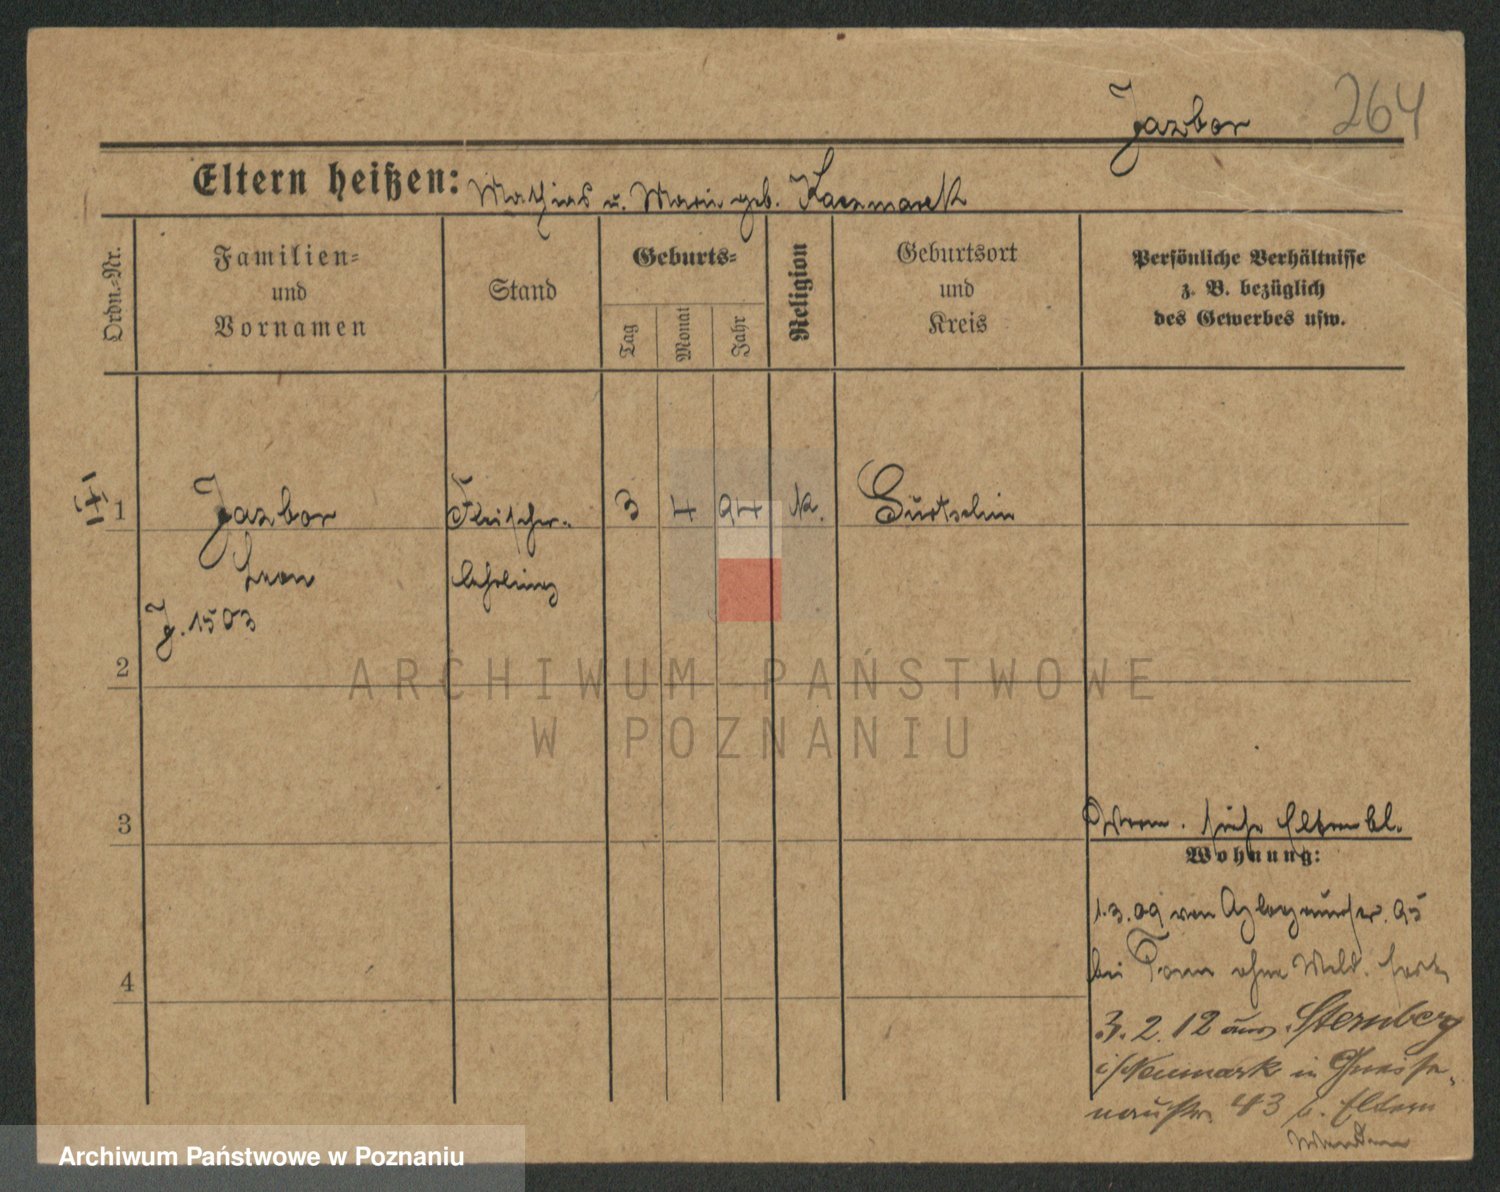 Jazbor 264
Eltern heißen: Mathias u. Marie geb. Kaczmarek
Ordn.-Nr.
Familien-
und
Vornamen
Stand
Geburts-
Tag
Monat
Jahr
Religion
Geburtsort
und
Kreis
Persönliche Verhältnisse
z. B. bezüglich
des Gewerbes usw.
1 Jazbor Fleischer- 3 4 94 k. Gurtschin
Leon lehrling
J. 1503
2
ARCHIWUM PAŃSTWOWE
W POZNANIU
3
siehe Elternbl.
Wohnung:
1.3.09 von 95
bei ohne Meld. fort
4
3.2.12 aus Sternberg
i/Neumark in Gneise-
naustr. 43 b. Eltern
Archiwum Państwowe w Poznaniu